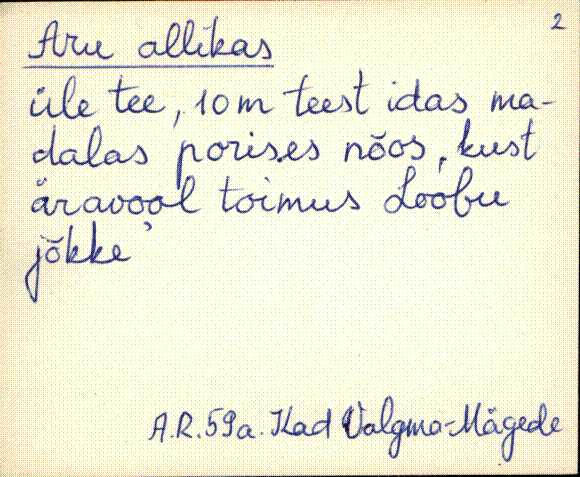 2
Aru allikas
üle tee, 10 m teest idas ma-
dalas porises nõos, kust
äravool toimus Loobu
jõkke
A.R. 59a. Kad Valgma-Mägede